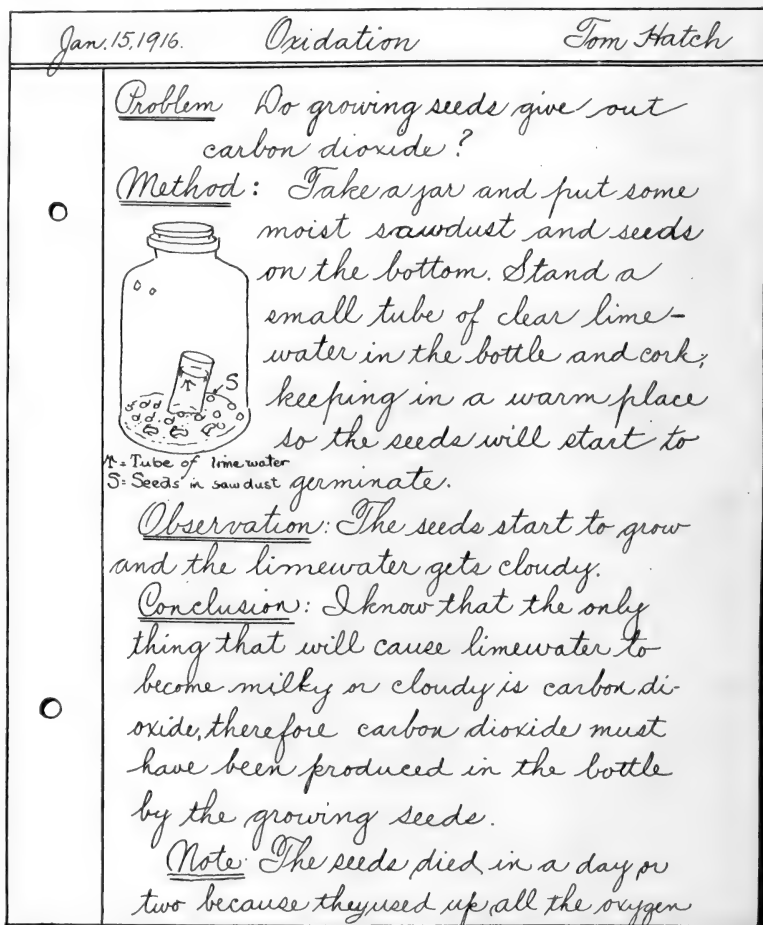 Jan. 15, 1916. Oxidation Tom Hatch
Problem Do growing seeds give out
carbon dioxide?
Method: Take a jar and put some
moist sawdust and seeds
on the bottom. Stand a
small tube of clear lime-
water in the bottle and cork,
keeping in a warm place
so the seeds will start to
germinate.
S
T
T = Tube of limewater
S = Seeds in sawdust
Observation: The seeds start to grow
and the limewater gets cloudy.
Conclusion: I know that the only
thing that will cause limewater to
become milky or cloudy is carbon di-
oxide, therefore carbon dioxide must
have been produced in the bottle
by the growing seeds.
Note The seeds died in a day or
two because they used up all the oxygen